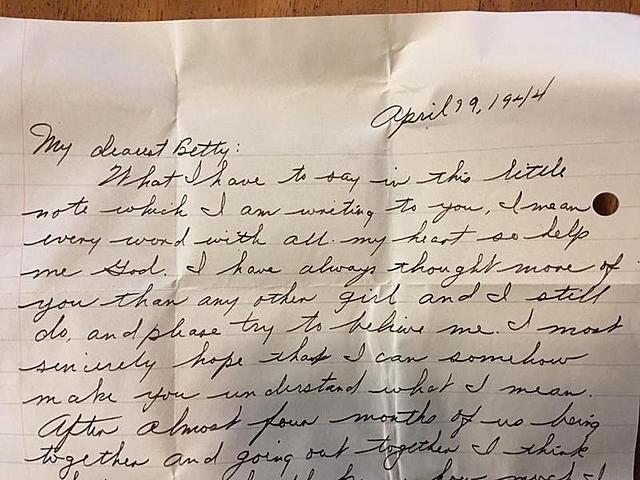 April 29, 1944
My dearest Betty:
What I have to say in this little
note which I am writing to you, I mean
every word with all my heart so help
me God. I have always thought more of
you than any other girl and I still
do, and please try to believe me. I most
sincerely hope that I can somehow
make you understand what I mean.
After almost four months of us being
together and going out together I think
how much I